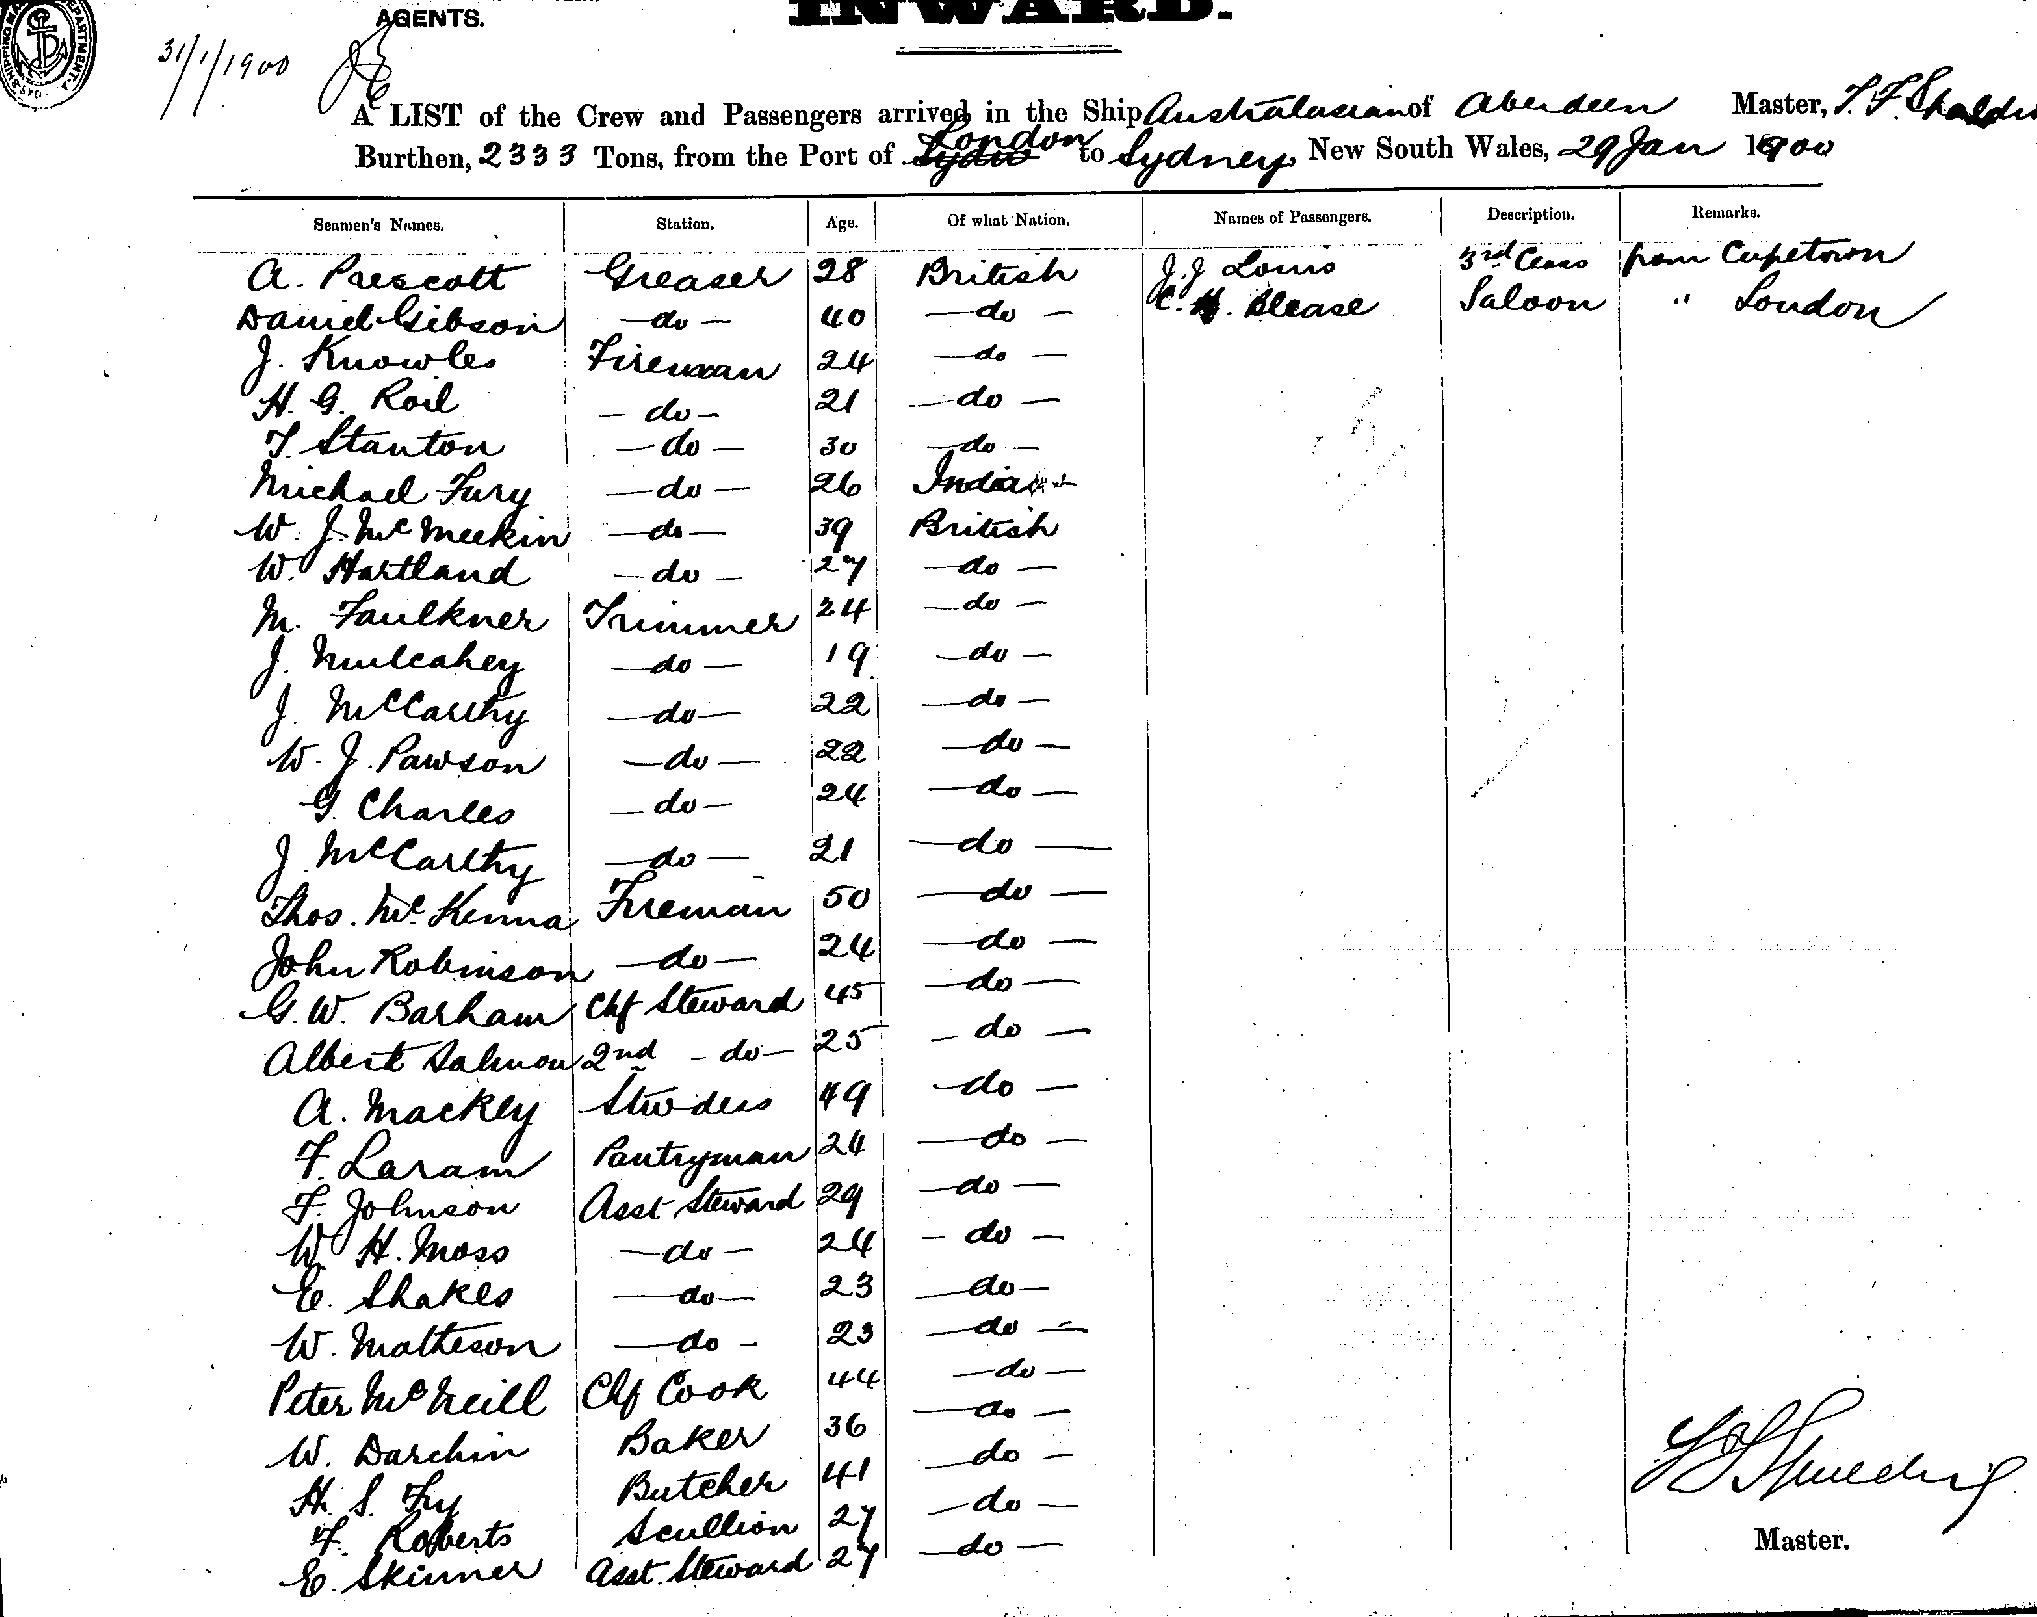 AGENTS.
INWARD.
31/1/1900
A LIST of the Crew and Passengers arrived in the Ship Australasian of Aberdeen Master, T. F.
Burthen, 2333 Tons, from the Port of London to Sydney, New South Wales, 29 Jan 1900
Seamen's Names. Station. Age. Of what Nation. Names of Passengers. Description. Remarks.
A. Prescott Greaser 28 British J. J Louis 3rd Class from Capetown
Daniel Gibson -do- 40 -do- C. H. Blease Saloon " London
J. Knowles Fireman 24 -do-
H. G. Roil -do- 21 -do-
T. Stanton -do- 30 -do-
Michael Fury -do- 26 India
W. J. McMeekin -do- 39 British
W. Hartland -do- 27 -do-
M. Faulkner Trimmer 24 -do-
J. Mulcahey -do- 19 -do-
J. McCarthy -do- 22 -do-
W. J. Pawson -do- 22 -do-
G. Charles -do- 24 -do-
J. McCarthy -do- 21 -do-
Thos. McKenna Fireman 50 -do-
John Robinson -do- 24 -do-
G. W. Barham Chf Steward 45 -do-
Albert Salmon 2nd -do- 25 -do-
A. Mackey Stwdess 49 -do-
F. Laram Pantryman 24 -do-
F. Johnson Asst Steward 29 -do-
W. H. Moss -do- 24 -do-
E. Shakes -do- 23 -do-
W. Matheson -do- 23 -do-
Peter McNeill Chf Cook 44 -do-
W. Darchin Baker 36 -do-
H. S. Fry Butcher 41 -do-
F. Roberts Scullion 27 -do-
E. Skinner Asst. Steward 27 -do-
Master.